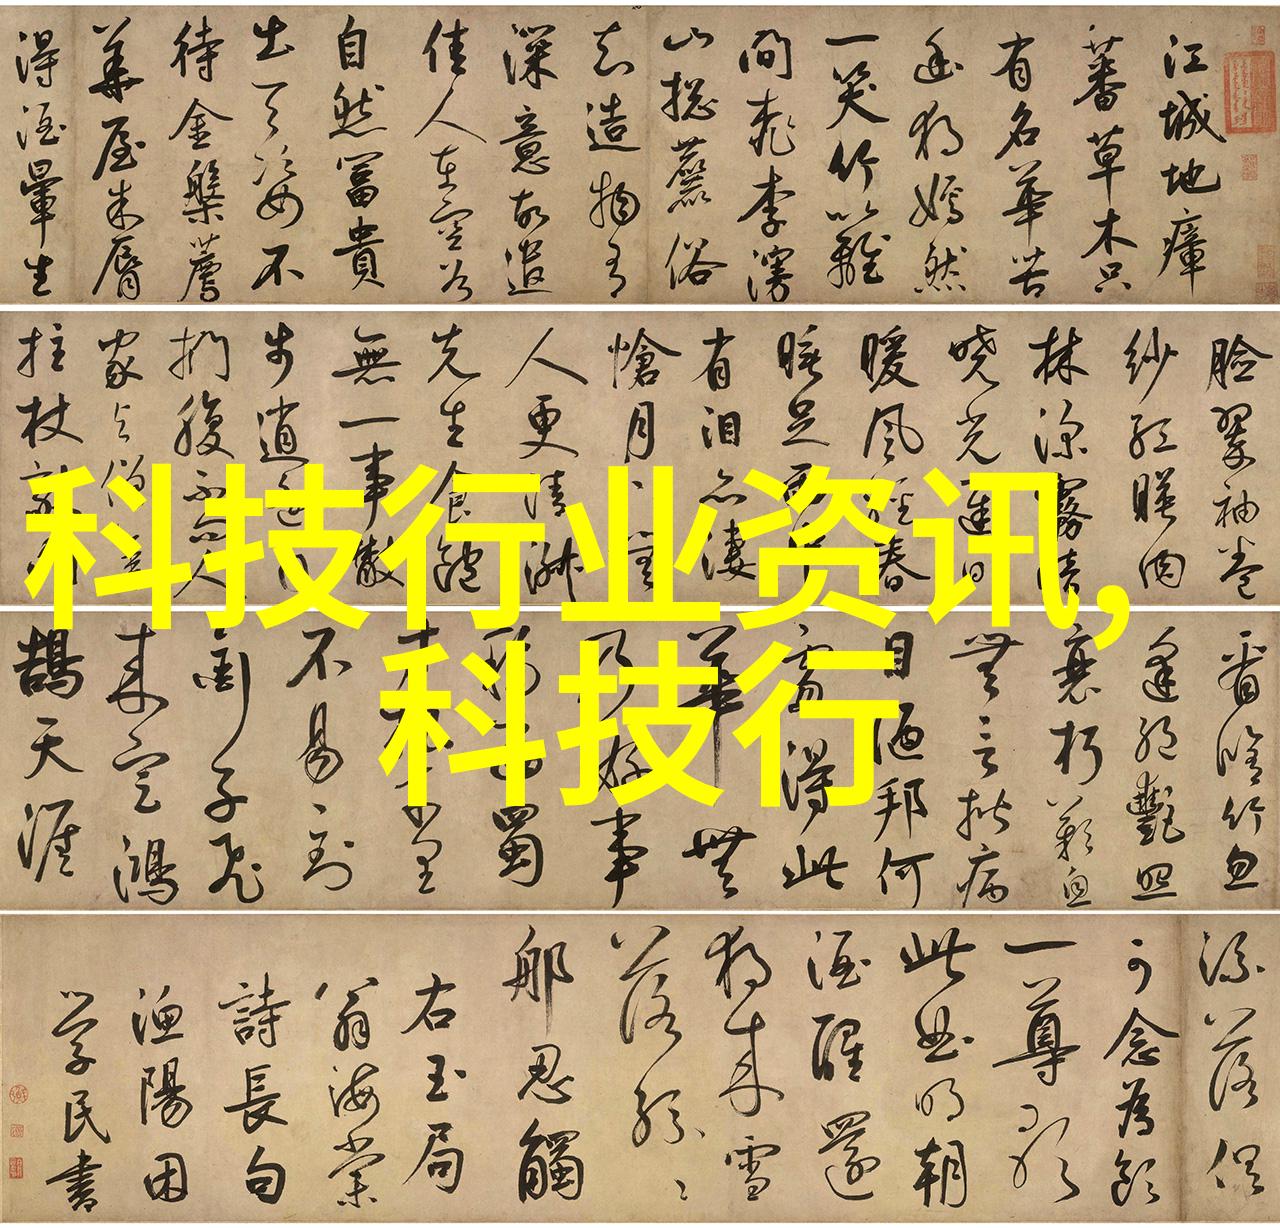 江城地瘴
蕃草木只
有名華苦
幽獨嫣然
一笑竹籬
間桃李漫
山揔麤俗
知造物有
深意故遣
佳人在空谷
自然冨貴
出天姿不
待金盤薦
華屋朱脣
得酒暈生
臉翠袖卷
紗紅暎肉
林深霧暗
曉光遲日
暖風輕春
睡足雨中
有泪亦悽
愴月下無
人更清淑
先生食飽
無一事散
步逍遥自
捫腹不問人
家与僧舍
拄杖敲門
看脩竹忽
逢絕艷照
衰朽歎息
無言揩病
目陋邦何
處得此
華無
乃好事
移西蜀
寸根千里
不易到
銜子飛
来定鴻
鵠天涯
流落俱
可念為飲
一尊歌
此曲明朝
酒醒還
獨来雪
落紛〻
那忍觸
右玉局
翁海棠
詩長句
漁陽困
学民書
科技行业资讯,
科技行